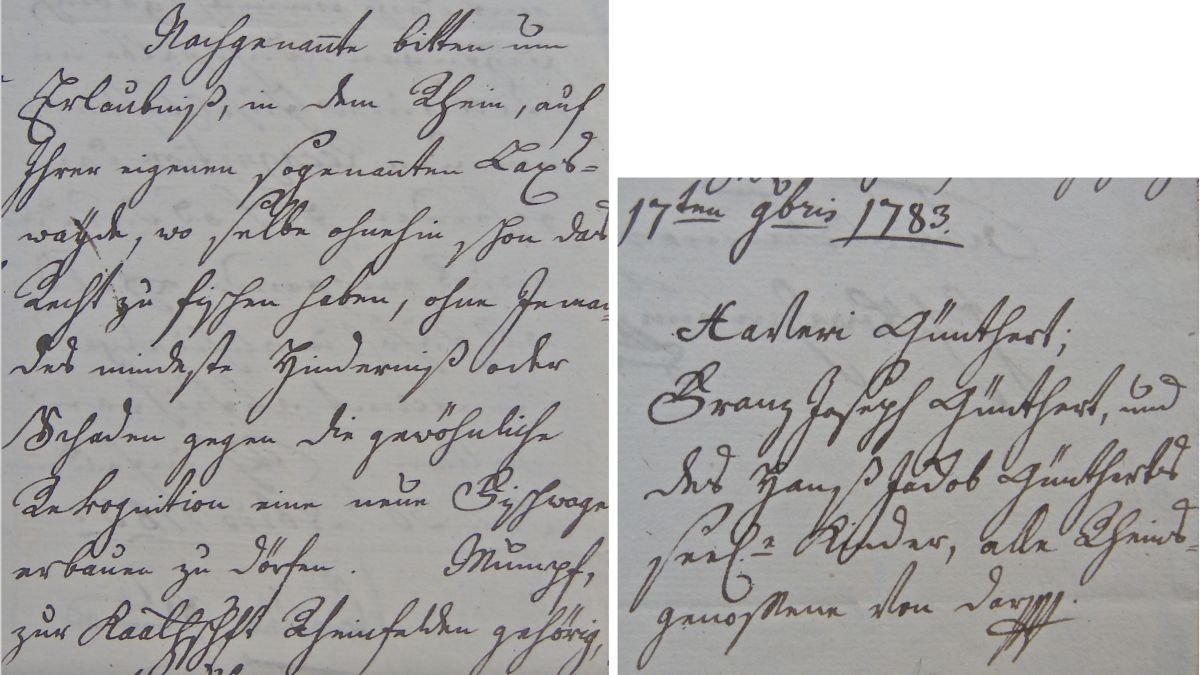 Nachgenañte bitten um
Erlaubniß, in dem Rhein, auf
Ihrer eigenen sogenañten Laxs=
wayde, wo selbe ohnehin schon das
Recht zu fischen haben, ohne Jeman=
des mindeste Hinderniß oder
Schaden gegen die gewöhnliche
Rekognition eine neue Fischwage
erbauen zu dörfen. Mumpf,
zur Kaalhschft Rheinfelden gehörig,
17ten 9bris 1783.
Xaveri Günthert;
Franz Joseph Günthert, und
des Hanß Jacob Güntherts
seel. Kinder, alle Rheins=
genossene von dar